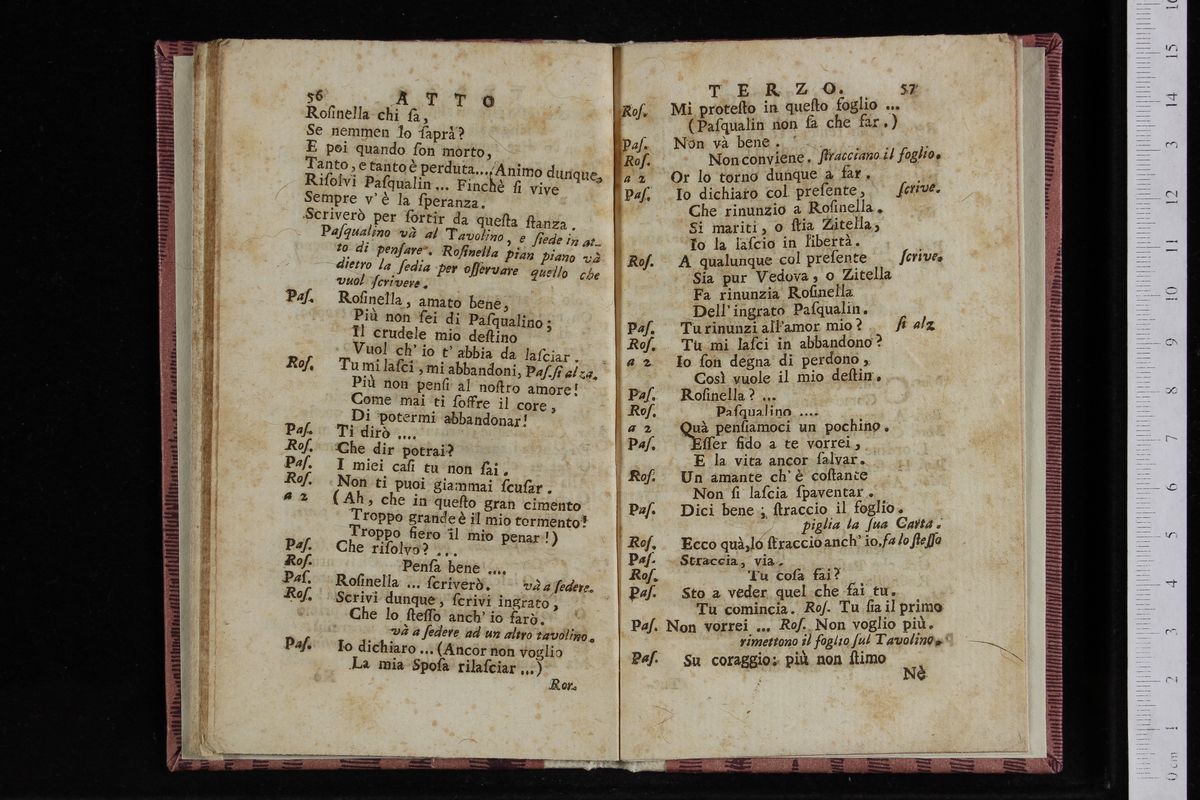 56 ATTO
Roſinella chi ſa,
Se nemmen lo ſaprà?
E poi quando ſon morto,
Tanto, e tanto è perduta.... Animo dunque,
Riſolvi Paſqualin ... Finchè ſi vive
Sempre v' è la ſperanza.
Scriverò per ſortir da queſta ſtanza.
Paſqualino và al Tavolino, e ſiede in at-
to di penſare. Roſinella pian piano và
dietro la ſedia per oſſervare quello che
vuol ſcrivere.
Paſ. Roſinella, amato bene,
Più non ſei di Paſqualino;
Il crudele mio deſtino
Vuol ch' io t' abbia da laſciar.
Roſ. Tu mi laſci, mi abbandoni, Paſ. ſi alza.
Più non penſi al noſtro amore!
Come mai ti ſoffre il core,
Di potermi abbandonar!
Paſ. Ti dirò ....
Roſ. Che dir potrai?
Paſ. I miei caſi tu non ſai.
Roſ. Non ti puoi giammai ſcuſar.
a 2 (Ah, che in queſto gran cimento
Troppo grande è il mio tormento!
Troppo fiero il mio penar!)
Paſ. Che riſolvo? ...
Roſ. Penſa bene ....
Paſ. Roſinella ... ſcriverò. và a ſedere.
Roſ. Scrivi dunque, ſcrivi ingrato,
Che lo ſteſſo anch' io farò.
và a ſedere ad un altro tavolino.
Paſ. Io dichiaro ... (Ancor non voglio
La mia Spoſa rilaſciar ...)
Ror.
TERZO. 57
Roſ. Mi proteſto in queſto foglio ...
(Paſqualin non ſa che far.)
Paſ. Non và bene.
Roſ. Non conviene. ſtracciano il foglio.
a 2 Or lo torno dunque a far.
Paſ. Io dichiaro col preſente, ſcrive.
Che rinunzio a Roſinella.
Si mariti, o ſtia Zitella,
Io la laſcio in libertà.
Roſ. A qualunque col preſente ſcrive.
Sia pur Vedova, o Zitella
Fa rinunzia Roſinella
Dell' ingrato Paſqualin.
Paſ. Tu rinunzi all'amor mio? ſi alz
Roſ. Tu mi laſci in abbandono?
a 2 Io ſon degna di perdono,
Così vuole il mio deſtin.
Paſ. Roſinella? ...
Roſ. Paſqualino ....
a 2 Quà penſiamoci un pochino.
Paſ. Eſſer fido a te vorrei,
E la vita ancor ſalvar.
Roſ. Un amante ch' è coſtante
Non ſi laſcia ſpaventar.
Paſ. Dici bene; ſtraccio il foglio.
piglia la ſua Carta.
Roſ. Ecco quà, lo ſtraccio anch' io. fa lo ſteſſo
Paſ. Straccia, via.
Roſ. Tu coſa fai?
Paſ. Sto a veder quel che fai tu.
Tu comincia. Roſ. Tu ſia il primo
Paſ. Non vorrei ... Roſ. Non voglio più.
rimettono il foglio ſul Tavolino.
Paſ. Su coraggio: più non ſtimo
Nè